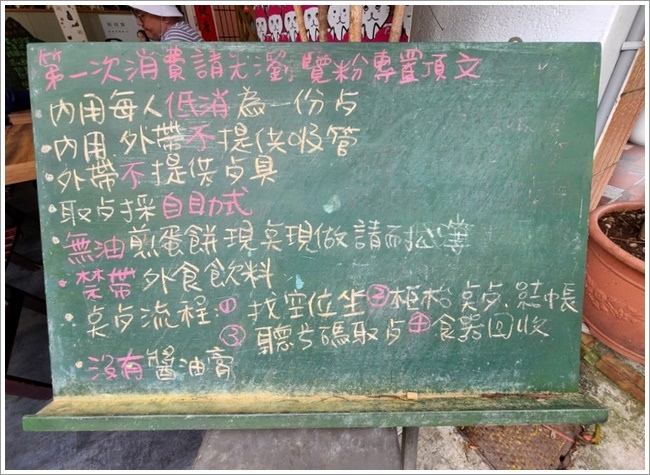 第一次消費請先瀏覽粉專置頂文
內用每人低消為一份歺
•內用 外帶不提供吸管
•外帶不提供歺具
•取歺採自助式
•無油煎蛋餅現奌現做請耐心等
•禁帶外食飲料
•奌歺流程:①找空位坐②柜枱奌歺.結帳
③聽号碼取歺④食器回收
•沒有醬油膏